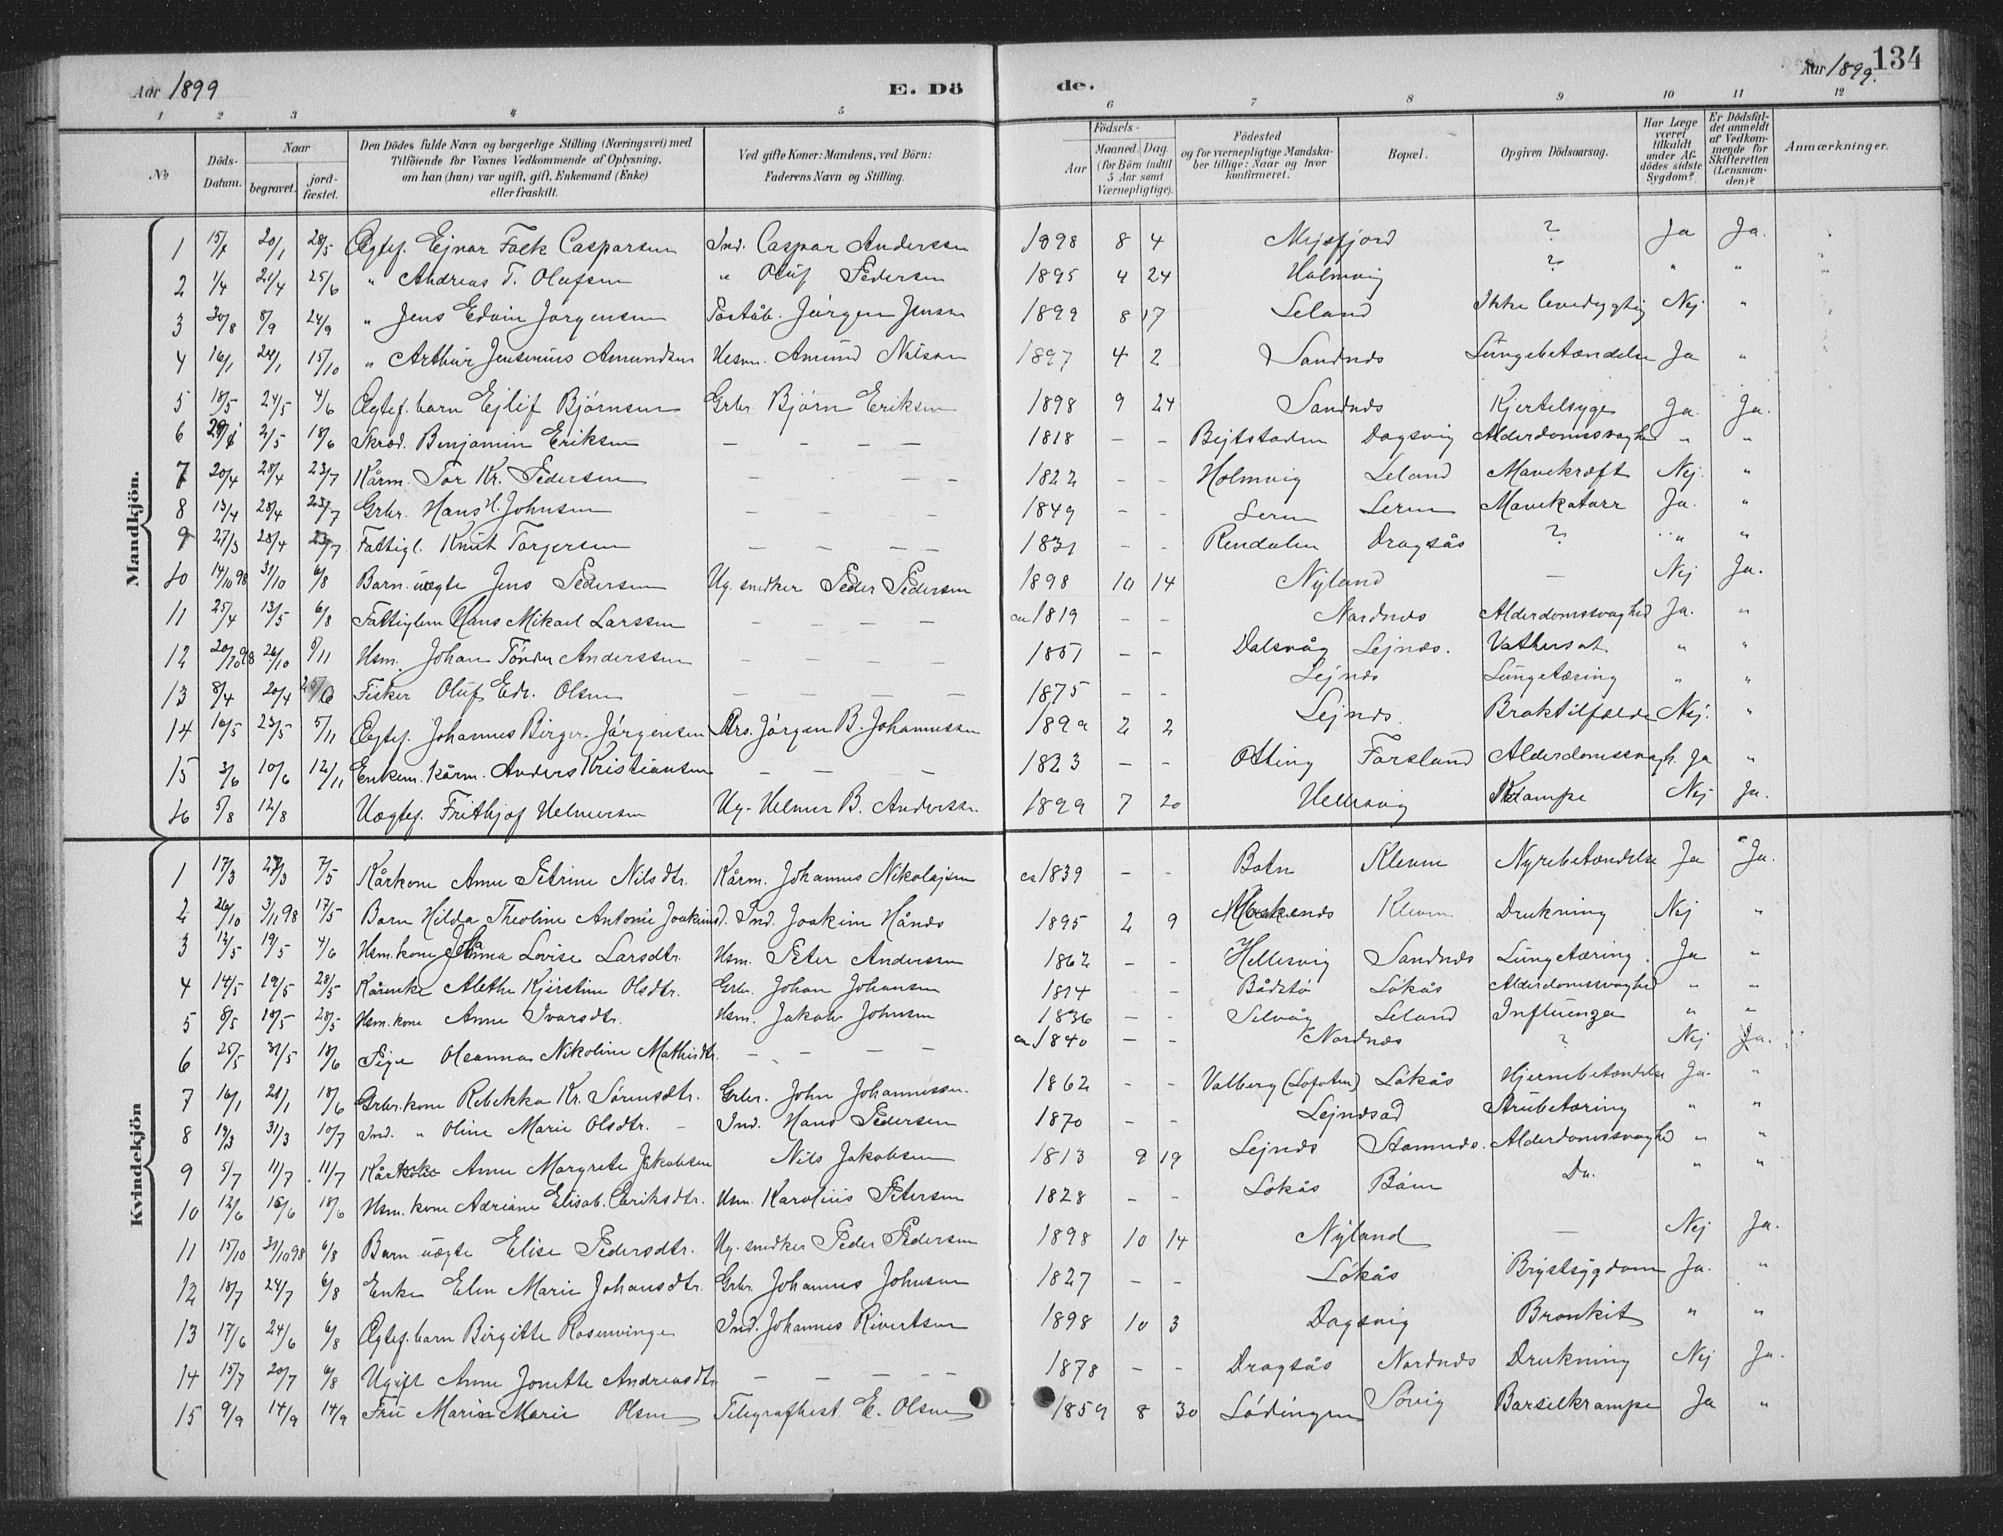 Aar 1899
E. Dö
de.
Aar 1899.
134
1 2 3 4 5 6 7 8 9 10 11 12
No
Döds-Datum.
Naar
begravet.
jord-fæstet.
Den Dödes fulde Navn og borgerlige Stilling (Næringsvei) med
Tilföiende for Voxnes Vedkommende af Oplysning,
om han (hun) var ugift, gift, Enkemand (Enke)
eller fraskilt.
Ved gifte Koner: Mandens, ved Börn:
Faderens Navn og Stilling.
Födsels-
Aar
Maaned. Dag
(for Börn indtil
5 Aar samt
Værnepligtige).
Födested
og for værnepligtige Mandska-
ber tillige: Naar og hvor
konfirmeret.
Bopæl.
Opgiven Dödsaarsag.
Har Læge
været
tilkaldt
under Af-
dödes sidste
Sygdom?
Er Dödsfal-
det anmeldt
af Vedkom-
mende for
Skifteretten
(Lensman-
den)?
Anmærkninger.
Mandkjön.
1 20/1 28/5 Ægtef. Ejnar Falk Casparsen Ind. Caspar Anderssen 1898 8 4 Mejsfjord ? Ja Ja.
2 1/4 21/4 25/6 " Andreas T. Olufsen " Oluf Pedersen 1895 4 24 Holmvig ? " "
3 30/8 8/9 24/9 " Jens Edvin Jørgensen Poståb. Jørgen Jensen 1899 8 17 Leland Ikke levedygtig Nej "
4 16/1 24/1 15/10 " Arthur Jensenius Amundsen Husm. Amund Nilsen 1897 4 2 Sandnes Lungebetændelse Ja "
5 18/5 24/5 4/6 Ægtef. barn Ejlif Bjørnsen Grbr. Bjørn Eriksen 1898 9 24 Sandnes Kjertelsyge Ja. Ja.
6 2/5 18/6 Skrød. Benjamin Eriksen — — — — 1818 – – Bejtstaden Dagsvig Alderdomssvaghed " "
7 20/4 28/4 23/7 Kårm. Tor Kr. Pedersen — — — — 1822 – – Holmvig Leland Mavekræft Nej. "
8 13/4 28/4 23/7 Grbr. Hans H. Johnsen — — — — 1849 – – Leren Leren Mavekatarr Ja. "
9 27/3 28/4 23/7 Fattigl. Knut Torgersen — — — — 1831 – – Rendalen Dragsås ? " "
10 14/10 98 31/10 6/8 Barn uægte Jens Pedersen Ug. snedker Peder Pedersen 1898 10 14 Nyland — Nej Ja.
11 25/4 13/5 6/8 Fattiglem Hans Mikael Larssen — — — — ca 1819 – – Nordnes Alderdomssvaghed Ja. "
12 20/10 98 26/10 5/11 Hsm. Johan Tönder Anderssen — — — — 1851 – – Dalsvåg Lejnes. Vathersot " "
13 8/4 20/4 25/6 Fisker Oluf Edv. Olsen — — — — 1875 – – Lejnes Lungetæring " "
14 16/5 23/5 5/11 Ægtef. Johannes Birger Jörgensen Jörgen B. Johannessen 1899 2 2 Lejnes. Braktilfælde Nej. "
15 3/6 10/6 12/11 Enkem. Kårm. Anders Kristiansen — — — 1823 – – Otting Forsland Alderdomssvagh. Ja "
16 5/8 12/8 Uægtef. Frithjof Helmersen Ug. Helmer B. Anderssen 1899 7 20 Hellesvig Krampe Nej Ja.
Kvindekjön
1 17/3 27/3 7/5 Kårkone Anne Petrine Nilsdtr. Kårm. Johannes Nikolajsen ca 1839 – – Botn Kleven Nyrebetændelse Ja Ja.
2 26/10 3/11 98 17/5 Barn Hilda Theoline Antonie Joakimsd. Ind. Joakim Hånes 1895 2 9 Kleven Drukning Nej "
3 12/5 19/5 4/6 Hsm. kone Lovise Larsdtr. Hsm. Peter Anderssen 1862 – – Hellesvig Sandnes Lungetæring. Ja "
4 14/5 19/5 28/5 Kårenke Alethe Kjerstine Olsdtr. Grbr. Johan Johansen 1814 – – Bådstø Løkås Alderdomssvaghed " "
5 8/5 19/5 28/5 Hsm. kone Anne Ivarsdtr. Hsm. Jakob Johnsen 1836 – – Selvåg Leland Influenza " "
6 25/5 31/5 18/6 Pige Oleanna Nikoline Mathisdtr. — — — — ca 1840 – – Nordnes ? Nej Ja.
7 16/1 21/1 18/6 Grbr. kone Rebekka Kr. Sörensdtr. Grbr. John Johannessen. 1862 – – Valberg (Lofoten) Løkås Hjernebetændelse Ja. "
8 19/3 31/3 10/7 Ind. " Oline Marie Olsdtr. – Ind. Hans Pedersen 1870 Lejnesød Strubetæring " "
9 5/7 11/7 11/7 Anne Margrete Jakobsen Nils Jakobsen 1813 9 19 Lejnes Stamnes. Alderdomssvaghed " "
10 12/6 16/6 18/6 Hsm. kone Adriane Elisab. Eriksdtr. Hsm. Karolius Petersen 1828 – – Løkås Båen Do. " "
11 15/10 31/10 98 6/8 Barn uægte Elise Pedersdtr. Ug. snedker Peder Pedersen 1898 10 14 Nyland — Nej Ja.
12 18/7 24/7 6/8 Enke Elen Marie Johansdtr. Grbr. Johannes Johnsen 1827 – – Løkås Brystsygdom Ja. "
13 17/6 24/6 6/8 Ægtef. barn Birgitte Rosenvinge Ind. Johannes Rivertsen 1898 10 3 Dagsvig Bronkit " "
14 15/7 20/7 6/8 Ugift Anne Jonette Andreasdtr. — — — — — 1878 – – Dragsås Nordnes Drukning Nej Ja.
15 9/9 14/9 14/9 Fru Marie Olsen Telegrafbest. E. Olsen 1859 8 30 Lödingen Søvig Barselkrampe Ja "